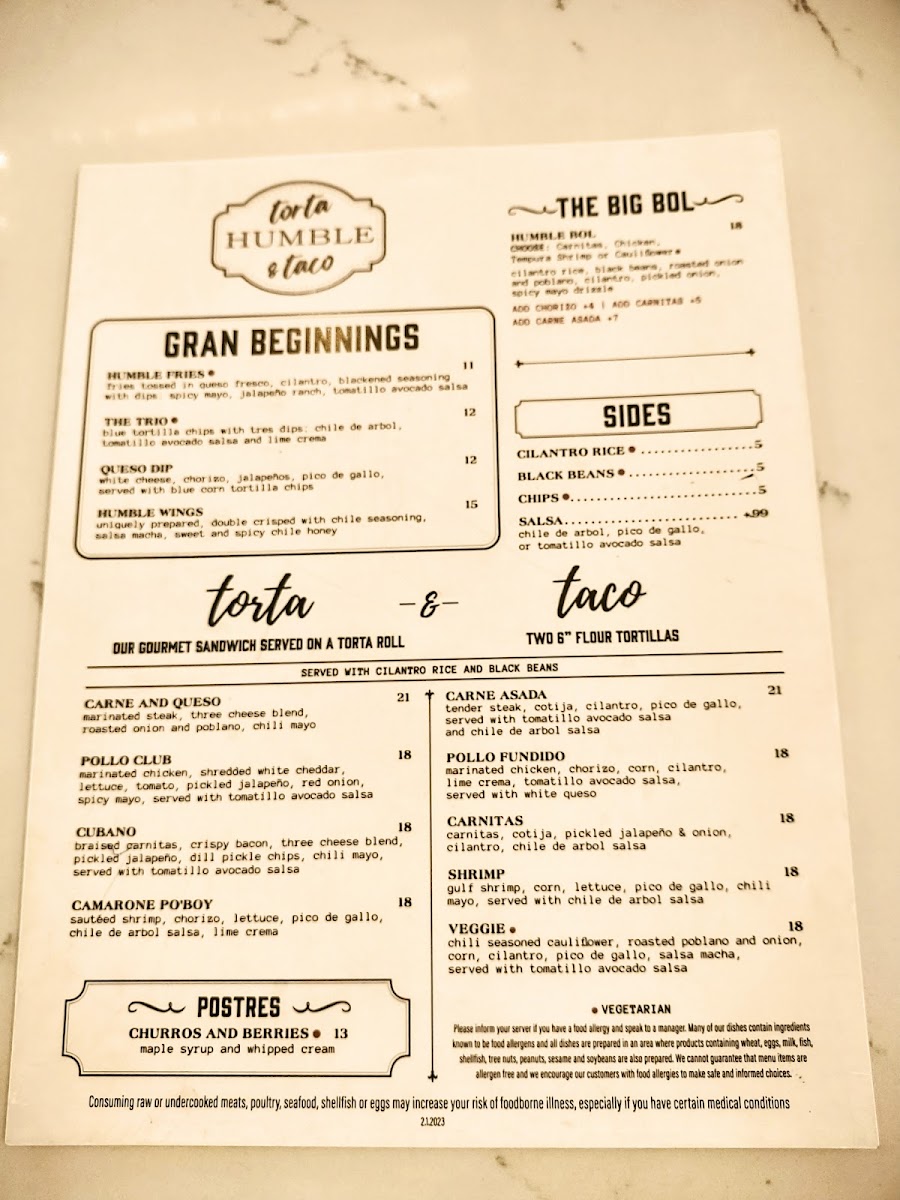 torta
HUMBLE
& taco
GRAN BEGINNINGS
HUMBLE FRIES • 11
fries tossed in queso fresco, cilantro, blackened seasoning
with dips: spicy mayo, jalapeño ranch, tomatillo avocado salsa
THE TRIO • 12
blue tortilla chips with tres dips: chile de arbol,
tomatillo avocado salsa and lime crema
QUESO DIP 12
white cheese, chorizo, jalapeños, pico de gallo,
served with blue corn tortilla chips
HUMBLE WINGS 15
uniquely prepared, double crisped with chile seasoning,
salsa macha, sweet and spicy chile honey
THE BIG BOL
HUMBLE BOL 18
CHOOSE: Carnitas, Chicken,
Tempura Shrimp or Cauliflower•
cilantro rice, black beans, roasted onion
and poblano, cilantro, pickled onion,
spicy mayo drizzle
ADD CHORIZO +4 | ADD CARNITAS +5
ADD CARNE ASADA +7
SIDES
CILANTRO RICE • ..................5
BLACK BEANS •....................5
CHIPS •............................5
SALSA......................... +.99
chile de arbol, pico de gallo,
or tomatillo avocado salsa
torta -&- taco
OUR GOURMET SANDWICH SERVED ON A TORTA ROLL
TWO 6" FLOUR TORTILLAS
SERVED WITH CILANTRO RICE AND BLACK BEANS
CARNE AND QUESO 21
marinated steak, three cheese blend,
roasted onion and poblano, chili mayo
POLLO CLUB 18
marinated chicken, shredded white cheddar,
lettuce, tomato, pickled jalapeño, red onion,
spicy mayo, served with tomatillo avocado salsa
CUBANO 18
braised carnitas, crispy bacon, three cheese blend,
pickled jalapeño, dill pickle chips, chili mayo,
served with tomatillo avocado salsa
CAMARONE PO'BOY 18
sautéed shrimp, chorizo, lettuce, pico de gallo,
chile de arbol salsa, lime crema
CARNE ASADA 21
tender steak, cotija, cilantro, pico de gallo,
served with tomatillo avocado salsa
and chile de arbol salsa
POLLO FUNDIDO 18
marinated chicken, chorizo, corn, cilantro,
lime crema, tomatillo avocado salsa,
served with white queso
CARNITAS 18
carnitas, cotija, pickled jalapeño & onion,
cilantro, chile de arbol salsa
SHRIMP 18
gulf shrimp, corn, lettuce, pico de gallo, chili
mayo, served with chile de arbol salsa
VEGGIE • 18
chili seasoned cauliflower, roasted poblano and onion,
corn, cilantro, pico de gallo, salsa macha,
served with tomatillo avocado salsa
POSTRES
CHURROS AND BERRIES • 13
maple syrup and whipped cream
• VEGETARIAN
Please inform your server if you have a food allergy and speak to a manager. Many of our dishes contain ingredients
known to be food allergens and all dishes are prepared in an area where products containing wheat, eggs, milk, fish,
shellfish, tree nuts, peanuts, sesame and soybeans are also prepared. We cannot guarantee that menu items are
allergen free and we encourage our customers with food allergies to make safe and informed choices.
Consuming raw or undercooked meats, poultry, seafood, shellfish or eggs may increase your risk of foodborne illness, especially if you have certain medical conditions
2.1.2023